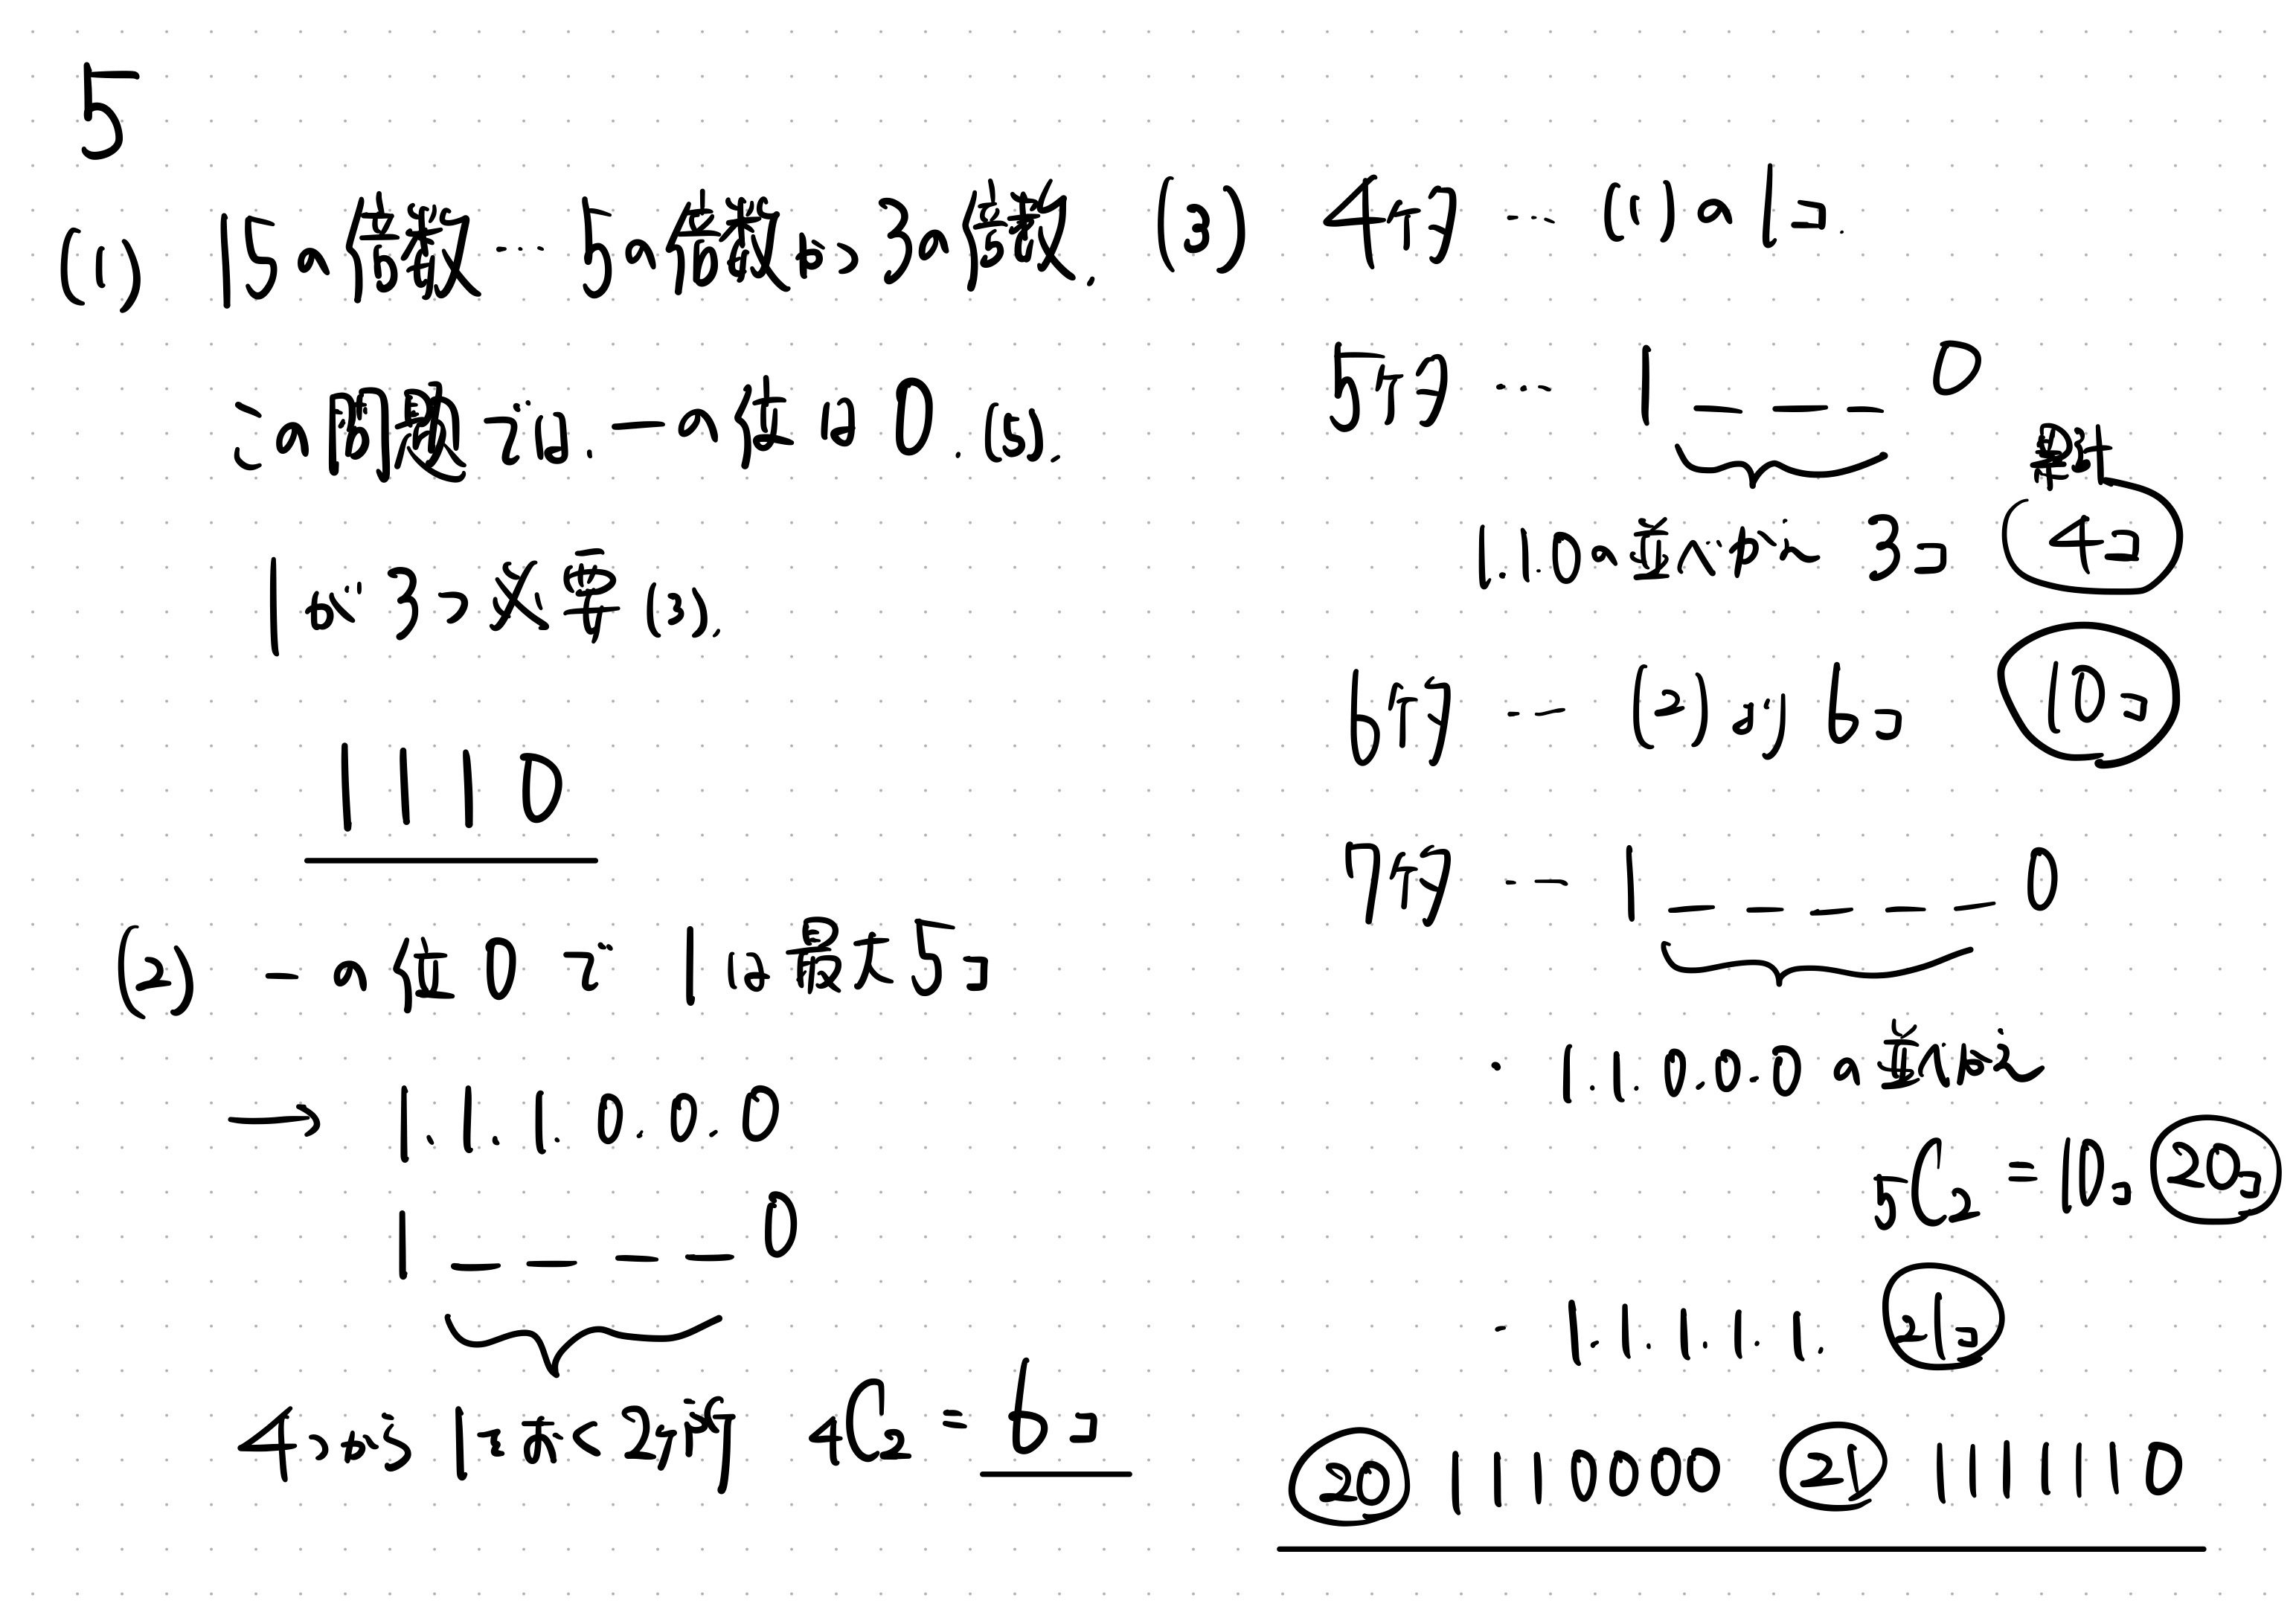 5
(1) 15の倍数…5の倍数かつ3の倍数.
この問題では. 一の位は0.(5).
1が3つ必要(3).
1110
(2) 一の位0で1は最大5コ
→ 1.1.1.0.0.0
1____0
4つから1をおく2ヶ所 4C2=6コ
(3) 4ケタ … (1)の1コ.
5ケタ … 1___0
累計
1.1.0の並べかえ 3コ 4コ
6ケタ … (2)より6コ 10コ
7ケタ … 1_____0
・1.1.0.0.0の並べかえ
5C2=10コ 20コ
・1.1.1.1.1. 21コ
⑳ 1110000 ㉑ 1111110